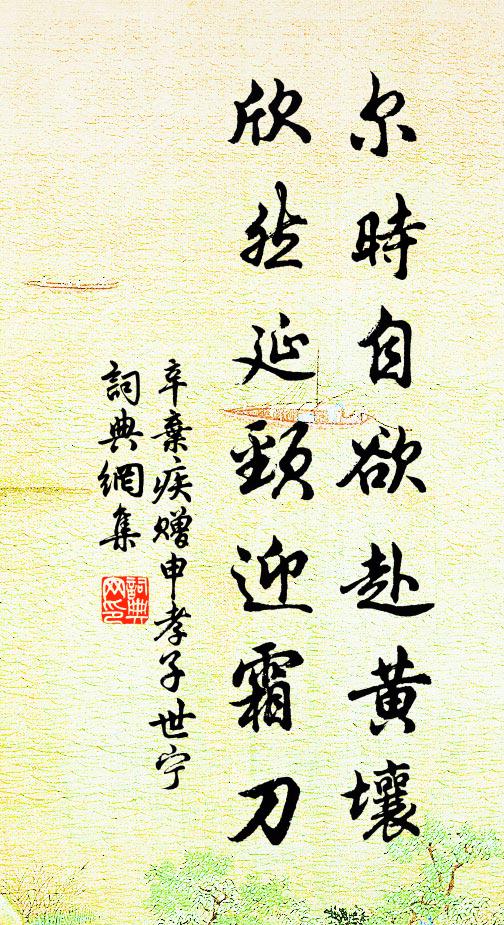 尔時自欲赴黄壤
欣然延頸迎霜刀
辛棄疾赠申孝子世宁
詞典網集
詞典网印